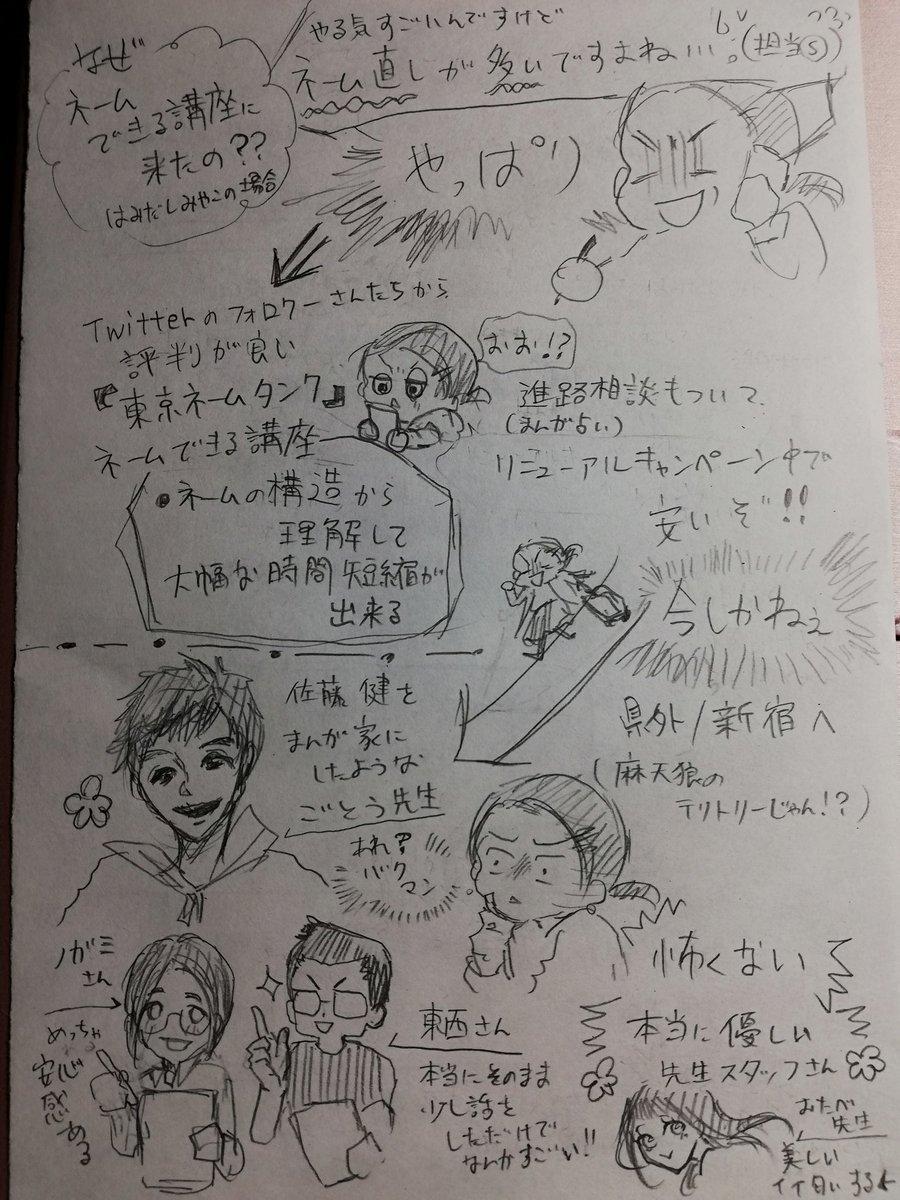 なぜ
ネーム
できる講座に
来たの??
はみだしみやこの場合
やる気すごいんですけど
ネーム直しが多いですよね…
(担当S)
やっぱり
Twitterのフォロワーさんたちから
評判が良い
『東京ネームタンク』
ネームできる講座
・ネームの構造から
理解して
大幅な時間短縮が
出来る
おお!?
進路相談もついて
(まんが占い)
リニューアルキャンペーン中で
安いぞ!!
今しかねぇ
県外/新宿へ
(麻天狼の
テリトリーじゃん!?)
佐藤健を
まんが家に
したような
ごとう先生
あれ?
バク
マン
怖くない
本当に優しい
先生スタッフさん
ノガミ
さん
めっちゃ
安心
感
ある
東西さん
本当にそのまま
少し話を
しただけで
なんかすごい!!
おたべ
先生
美しい
イイ匂いする